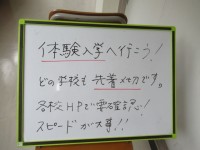 体験入学へ行こう!
どの学校も先着〆切です。
各校HPで要確認!
スピードが大事!!